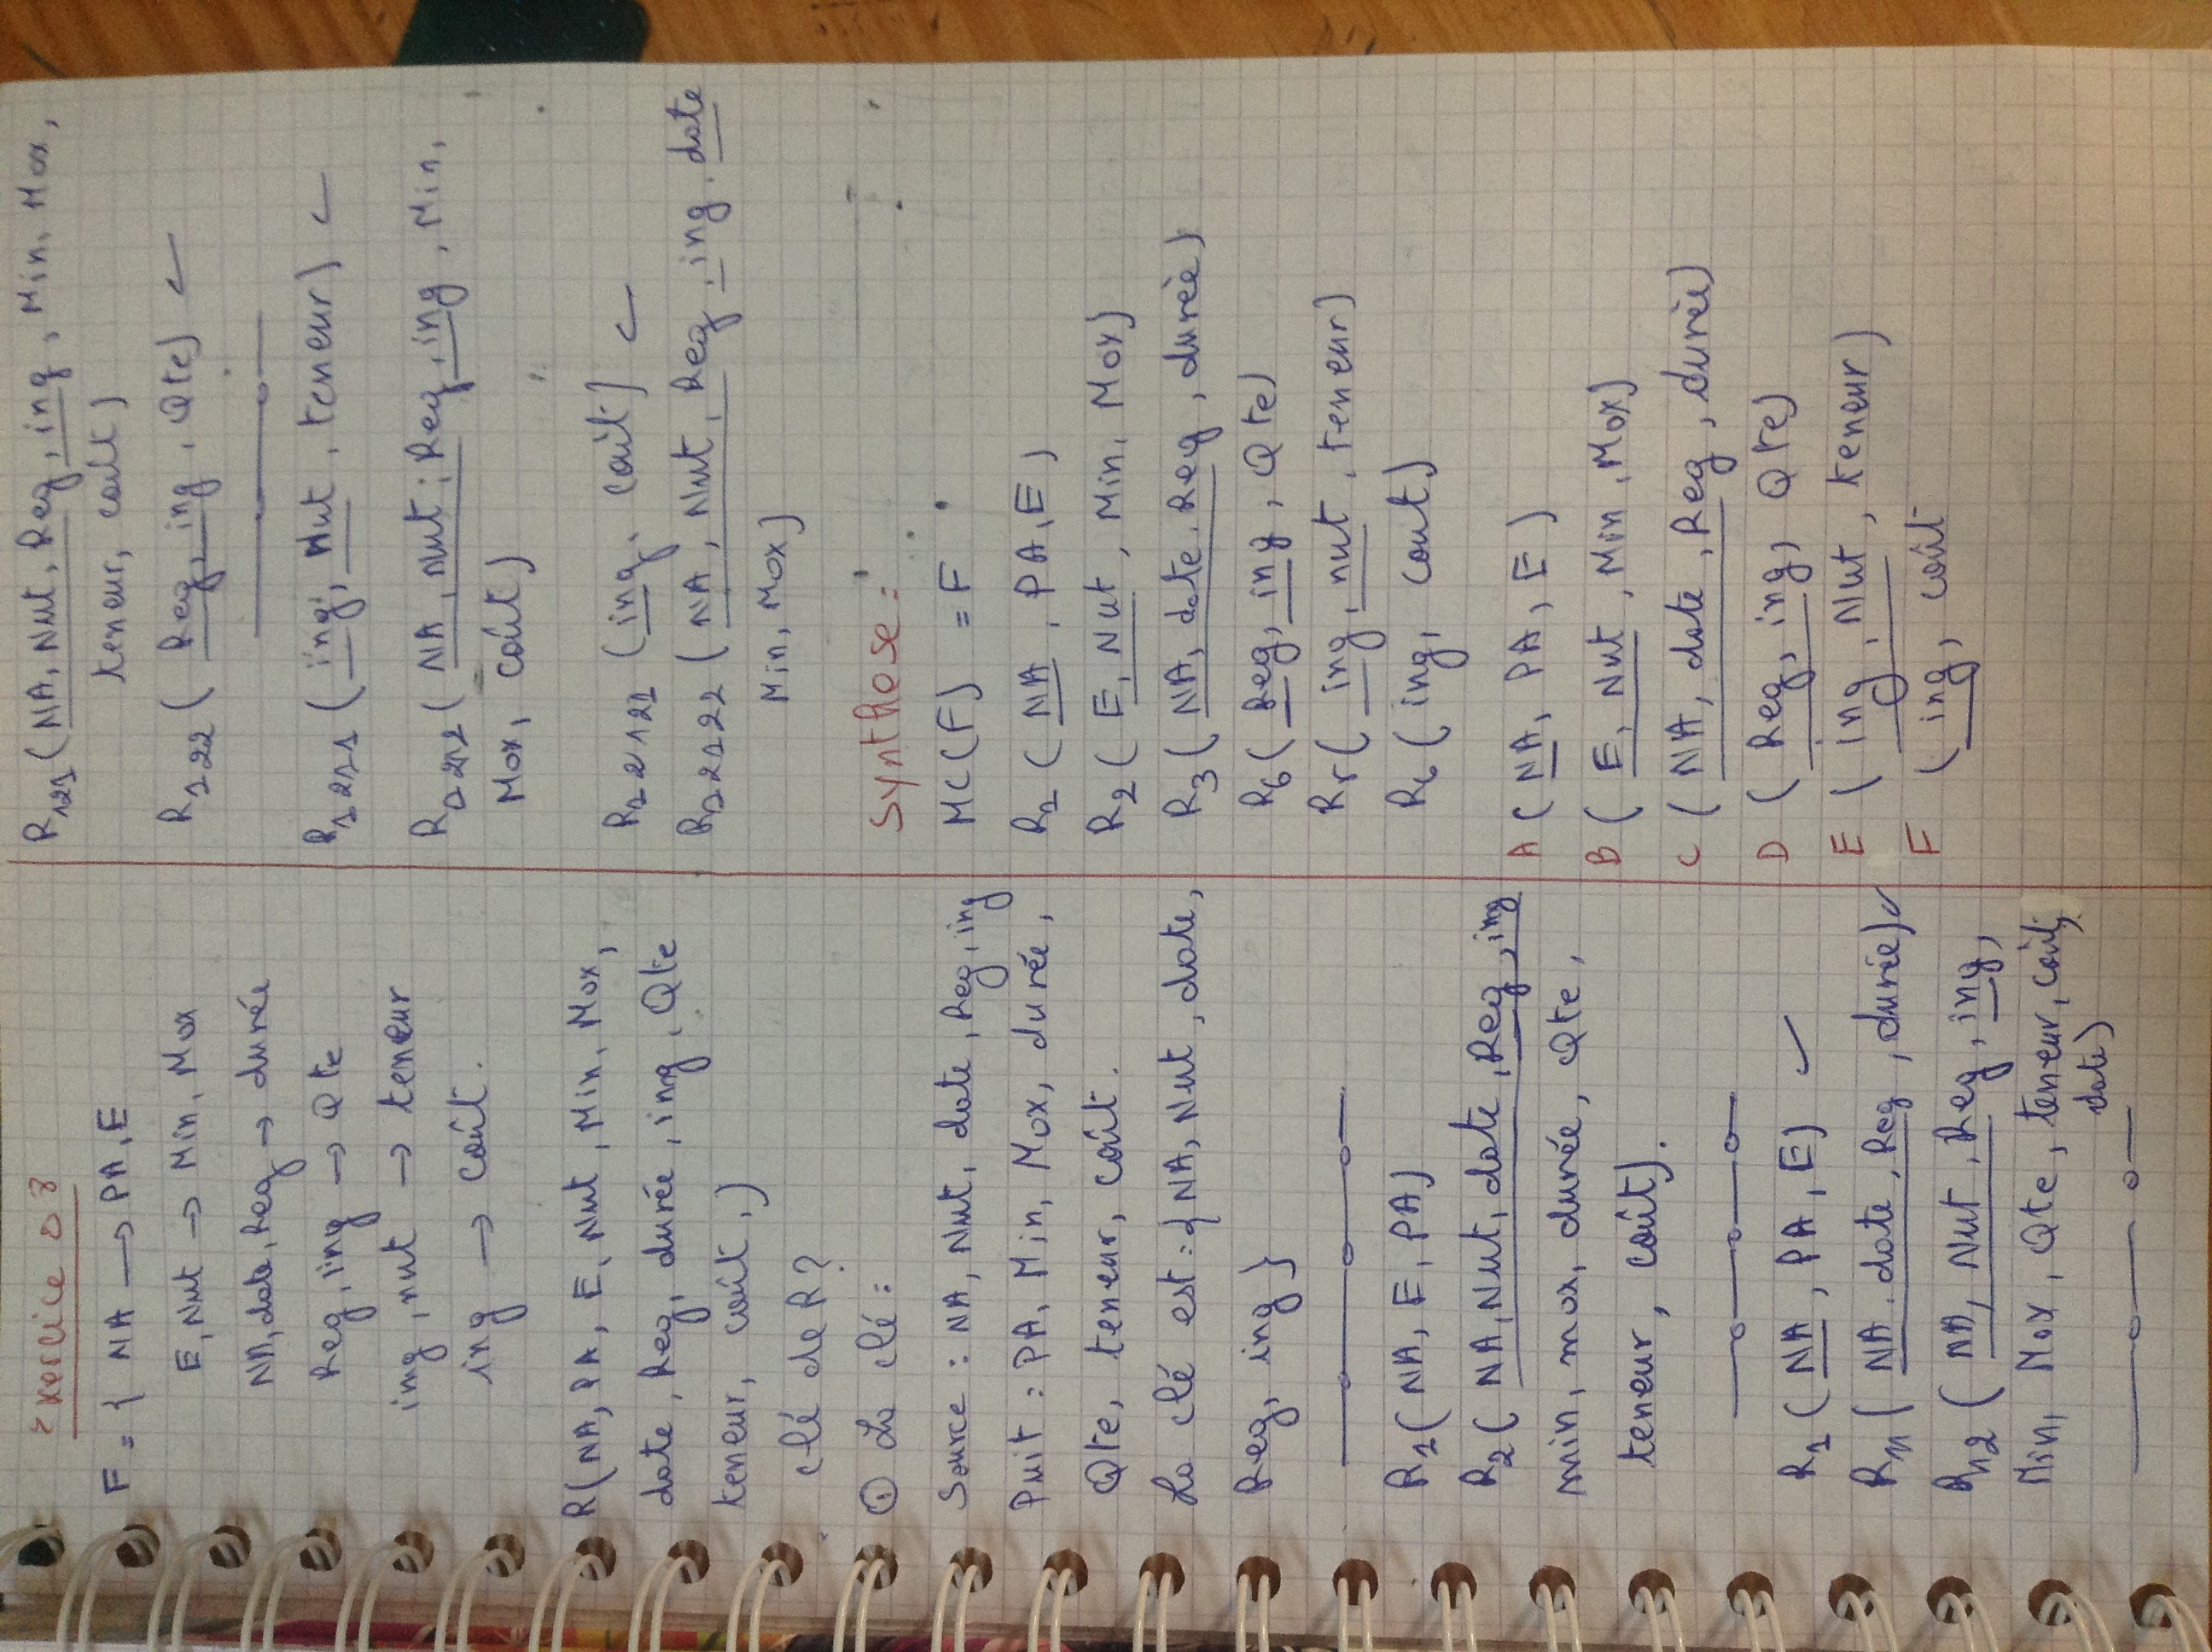 Exercice 08
F = { NA → PA, E
E, Nut → Min, Max
NA, date, Reg → durée
Reg, ing → Qte
ing, nut → teneur
ing → Coût.
R(NA, PA, E, Nut, Min, Max,
date, Reg, durée, ing, Qte
teneur, coût,)
clé de R?
① La clé :
Source : NA, Nut, date, Reg, ing
Puit : PA, Min, Max, durée,
Qte, teneur, coût.
La clé est : { NA, Nut, date,
Reg, ing }
R1( NA, E, PA)
R2( NA, Nut, date, Reg, ing
min, max, durée, Qte,
teneur, coût).
R1 ( NA, PA, E) ✓
R11 ( NA, date, Reg, durée) ✓
R12 ( NA, Nut, Reg, ing,
Min, Max, Qte, teneur, coût,
date)
R121 ( NA, Nut, Reg, ing, Min, Max,
teneur, coût)
R122 ( Reg, ing, Qte) ✓
R1211 ( ing, Nut, teneur) ✓
R1212 ( NA, Nut, Reg, ing, Min,
Max, coût)
R12121 ( ing, coût) ✓
R12122 ( NA, Nut, Reg, ing, date
Min, Max)
Synthese :
MC(F) = F
R1 ( NA, PA, E)
R2 ( E, Nut, Min, Max)
R3 ( NA, date, Reg, durée)
R6 ( Reg, ing, Qte)
R5 ( ing, nut, teneur)
R6 ( ing, cout)
A ( NA, PA, E )
B ( E, Nut, Min, Max)
C ( NA, date, Reg, durée)
D ( Reg, ing, Qte)
E ( ing, Nut, teneur)
F ( ing, coût